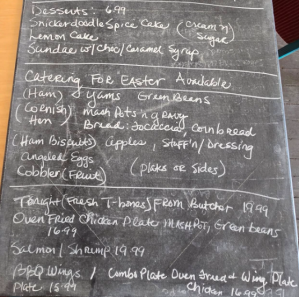 Desserts: 6.99
Snickerdoodle Spice Cake (cream n' Sugar
Lemon Cake
Sundae w/ Choc/Caramel Syrup
Catering For Easter Available
(Ham) Yams Green Beans
(Cornish Hen) Mash Pots n gravy
Bread: Focaccia, Cornbread
(Ham Biscuits) apples, Stuff'n/Dressing
angeled Eggs
Cobbler (Fruit) (Plates or Sides)
Tonight (Fresh T-bones) From Butcher 19.99
Oven Fried Chicken Plate Mash Pot, Green beans
16.99
Salmon/Shrimp 19.99
BBQ Wings / Combo Plate Oven Fried + Wing Plate
Plate 15.99 Chicken 16.99